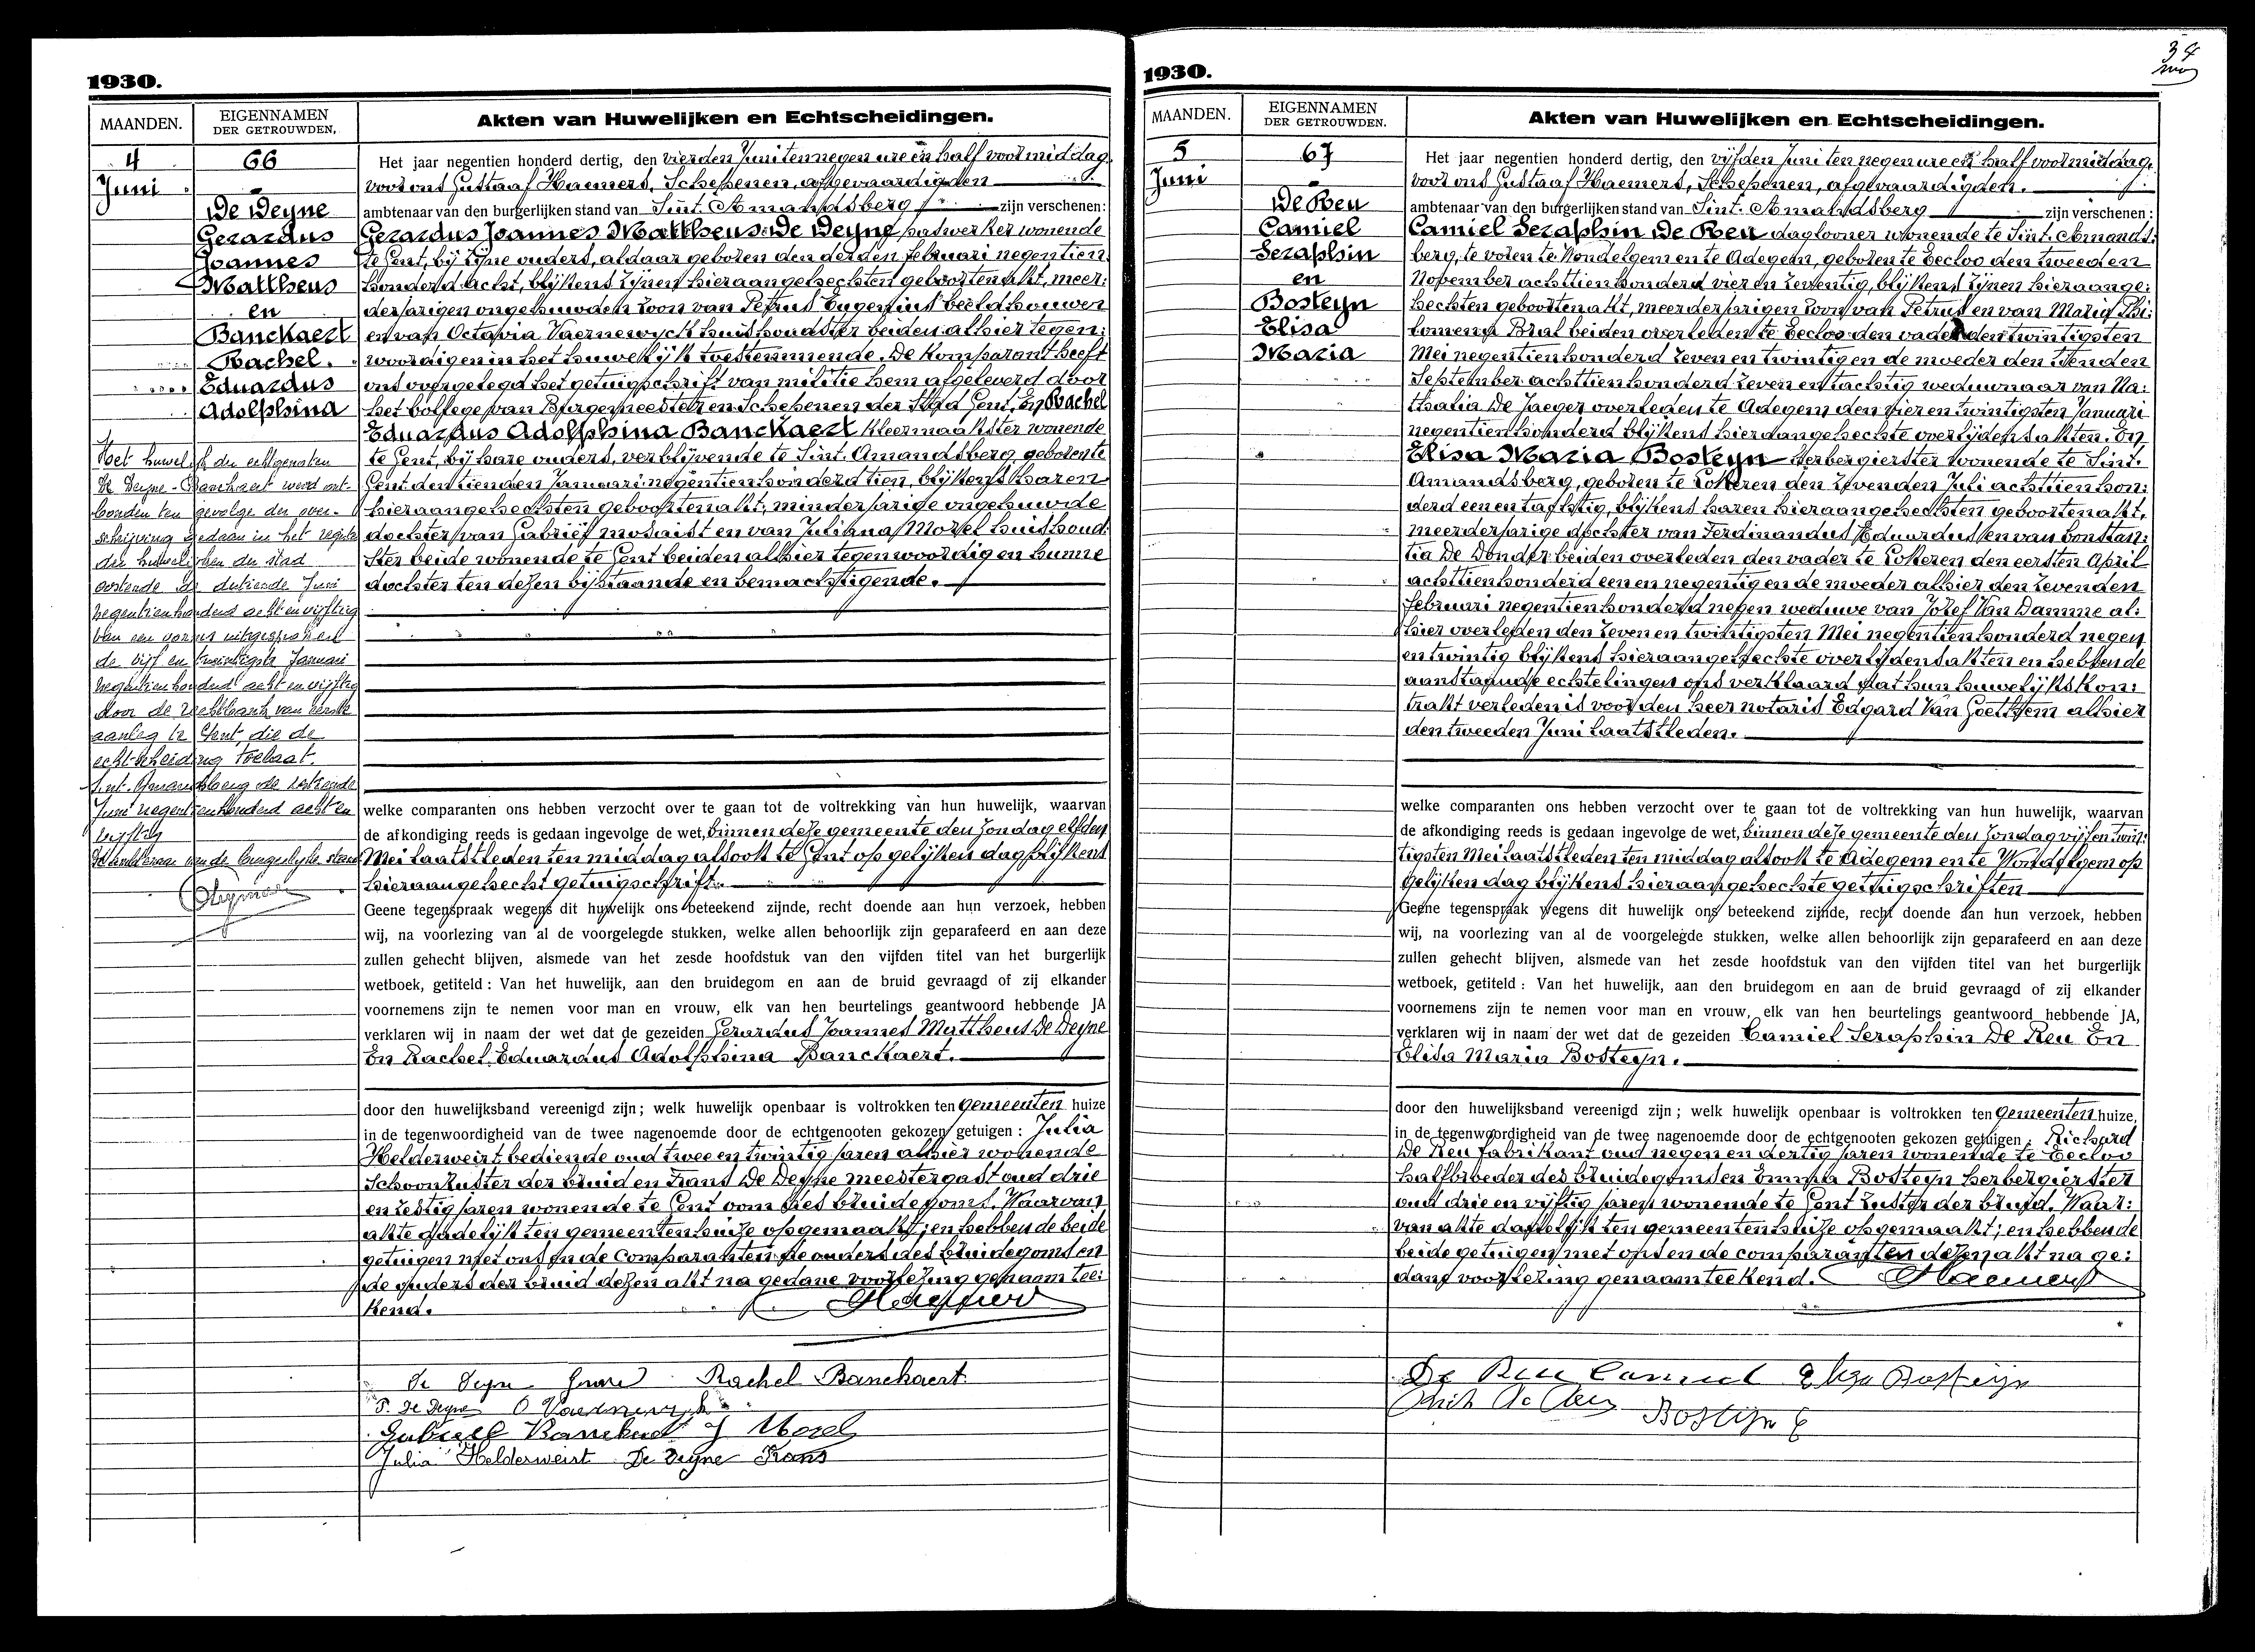 1930.
MAANDEN.
EIGENNAMEN
DER GETROUWDEN.
Akten van Huwelijken en Echtscheidingen.
4
Juni
66
De Deyne
Gerardus
Joannes
Mattheus
en
Banckaert
Rachel.
Eduardus
Adolphina
Het huwelijk der echtgenoten
De Deyne - Banckaert werd ont-
bonden ten gevolge der over-
schrijving gedaan in het register
der huwelijken der stad
Oostende de dertiende Juni
negentienhonderd acht en vijftig
van een vonnis uitgesproken
de vijf en twintigste Januari
negentienhonderd acht en vijftig
door de rechtbank van eerste
aanleg te Gent die de
echtscheiding toelaat.
Sint-Amandsberg de
Juni negentienhonderd acht en
vijftig
de burgerlijke stand
Het jaar negentien honderd dertig, den vierden Juni ten negen ure en half voormiddag
voor ons Gustaaf Haemers, Schepenen, afgevaardigden
ambtenaar van den burgerlijken stand van Sint. Amandsberg zijn verschenen:
Gerardus Joannes Mattheus De Deyne paswerker wonende
te Gent, bij zijne ouders, aldaar geboren den derden februari negentien
honderd acht, blijkens zijnen hieraangehechten geboortenakt, meer:
derjarigen ongehuwden zoon van Petrus Eugenius beeldhouwer
en van Octavia Vaernewyck huishoudster beiden alhier tegen:
woordigen in het huwelijk toestemmende. De komparant heeft
ons overgelegd het getuigschrift van militie hem afgeleverd door
het bollege van Burgemeester en Schepenen der Stad Gent, En Rachel
Eduardus Adolphina Banckaert kleermaakster wonende
te Gent, bij hare ouders, verblijvende te Sint. Amandsberg, geboren te
Gent den tienden Januari negentienhonderd tien, blijkens haren
hieraangehechten geboortenakt, minderjarige ongehuwde
dochter van Gabriël mosaist en van Juliana Morel huishoud:
ster beide wonende te Gent beiden alhier tegenwoordig en hunne
dochter ten dezen bijstaande en bemachtigende.
welke comparanten ons hebben verzocht over te gaan tot de voltrekking van hun huwelijk, waarvan
de afkondiging reeds is gedaan ingevolge de wet, binnen deze gemeente den Zondag elfden
Mei laatstleden ten middag alsook te Gent op gelijken dag blijkens
hieraangehecht getuigschrift.
Geene tegenspraak wegens dit huwelijk ons beteekend zijnde, recht doende aan hun verzoek, hebben
wij, na voorlezing van al de voorgelegde stukken, welke allen behoorlijk zijn geparafeerd en aan deze
zullen gehecht blijven, alsmede van het zesde hoofdstuk van den vijfden titel van het burgerlijk
wetboek, getiteld : Van het huwelijk, aan den bruidegom en aan de bruid gevraagd of zij elkander
voornemens zijn te nemen voor man en vrouw, elk van hen beurtelings geantwoord hebbende JA
verklaren wij in naam der wet dat de gezeiden Gerardus Joannes Mattheus De Deyne
En Rachel Eduardus Adolphina Banckaert.
door den huwelijksband vereenigd zijn; welk huwelijk openbaar is voltrokken ten gemeenten huize
in de tegenwoordigheid van de twee nagenoemde door de echtgenooten gekozen getuigen : Julia
Helderweirt bediende oud twee en twintig jaren alhier wonende
Schoonzuster der bruid en Frans De Deyne meestergast oud drie
en zestig jaren wonende te Gent oom des bruidegoms. Waarvan
akte dadelijk ten gemeentenhuize opgemaakt; en hebben de beide
getuigen met ons en de comparanten de ouders des bruidegoms en
de ouders der bruid dezen akt na gedane voorlezing genaamtee:
kend.
De Deyne Gerard Rachel Banckaert
P. De Deyne O Vaernewyck
Gabriel Banckaert J Morel
Julia Helderweirt De Deyne Frans
34
1930.
MAANDEN.
EIGENNAMEN
DER GETROUWDEN.
Akten van Huwelijken en Echtscheidingen.
5
Juni
67
De Reu
Camiel
Seraphin
en
Bosteyn
Elisa
Maria
Het jaar negentien honderd dertig, den vijfden Juni ten negen ure en half voormiddag.
voor ons Gustaaf Haemers, Schepenen, afgevaardigden.
ambtenaar van den burgerlijken stand van Sint. Amandsberg zijn verschenen :
Camiel Seraphin De Reu daglooner wonende te Sint. Amands:
berg, te voren te Wondelgem en te Adegem, geboren te Eecloo den tweeden
November achttienhonderd vier en zeventig, blijkens zijnen hieraange:
hechten geboortenakt, meerderjarigen zoon van Petrus en van Marie Phi:
lomena Bral beiden overleden te Eecloo den vader den twintigsten
Mei negentienhonderd zeven en twintig en de moeder den tienden
September achttienhonderd zeven en tachtig weduwnaar van Na:
thalia De Jaeger overleden te Adegem den vier en twintigsten Januari
negentienhonderd blijkens hieraangehechte overlijdensakten. En
Elisa Maria Bosteyn herbergierster wonende te Sint.
Amandsberg, geboren te Lokeren den zevenden Juli achttienhon:
derd een en tachtig, blijkens haren hieraangehechten geboortenakt,
meerderjarige dochter van Ferdinandus Eduardus en van Constan:
tia De Donder beiden overleden den vader te Lokeren den eersten April
achttienhonderd een en negentig en de moeder alhier den zevenden
februari negentienhonderd negen weduwe van Jozef Van Damme al:
hier overleden den zeven en twintigsten Mei negentienhonderd negen
en twintig blijkens hieraangehechte overlijdensakten en hebben de
aanstaande echtelingen ons verklaard dat hun huwelijkskon:
trakt verleden is voor den heer notaris Edgard Van Goethem alhier
den tweeden Juni laatstleden.
welke comparanten ons hebben verzocht over te gaan tot de voltrekking van hun huwelijk, waarvan
de afkondiging reeds is gedaan ingevolge de wet, binnen deze gemeente den Zondag vijf en twin:
tigsten Mei laatstleden ten middag alsook te Adegem en te Wondelgem op
gelijken dag blijkens hieraangehechte getuigschriften
Geene tegenspraak wegens dit huwelijk ons beteekend zijnde, recht doende aan hun verzoek, hebben
wij, na voorlezing van al de voorgelegde stukken, welke allen behoorlijk zijn geparafeerd en aan deze
zullen gehecht blijven, alsmede van het zesde hoofdstuk van den vijfden titel van het burgerlijk
wetboek, getiteld : Van het huwelijk, aan den bruidegom en aan de bruid gevraagd of zij elkander
voornemens zijn te nemen voor man en vrouw, elk van hen beurtelings geantwoord hebbende JA,
verklaren wij in naam der wet dat de gezeiden Camiel Seraphin De Reu En
Elisa Maria Bosteyn.
door den huwelijksband vereenigd zijn ; welk huwelijk openbaar is voltrokken ten Gemeenten huize,
in de tegenwoordigheid van de twee nagenoemde door de echtgenooten gekozen getuigen : Richard
De Reu fabrikant oud negen en dertig jaren wonende te Eecloo
halfbroeder des bruidegoms en Emma Bosteyn herbergierster
oud drie en vijftig jaren wonende te Gent zuster der bruid. Waar:
van akte dadelijk ten gemeentenhuize opgemaakt; en hebben de
beide getuigen met ons en de comparanten dezen akt na ge:
dane voorlezing genaamteekend. Haemers
De Reu Camiel Eliza Bosteyn
Bosteyn E